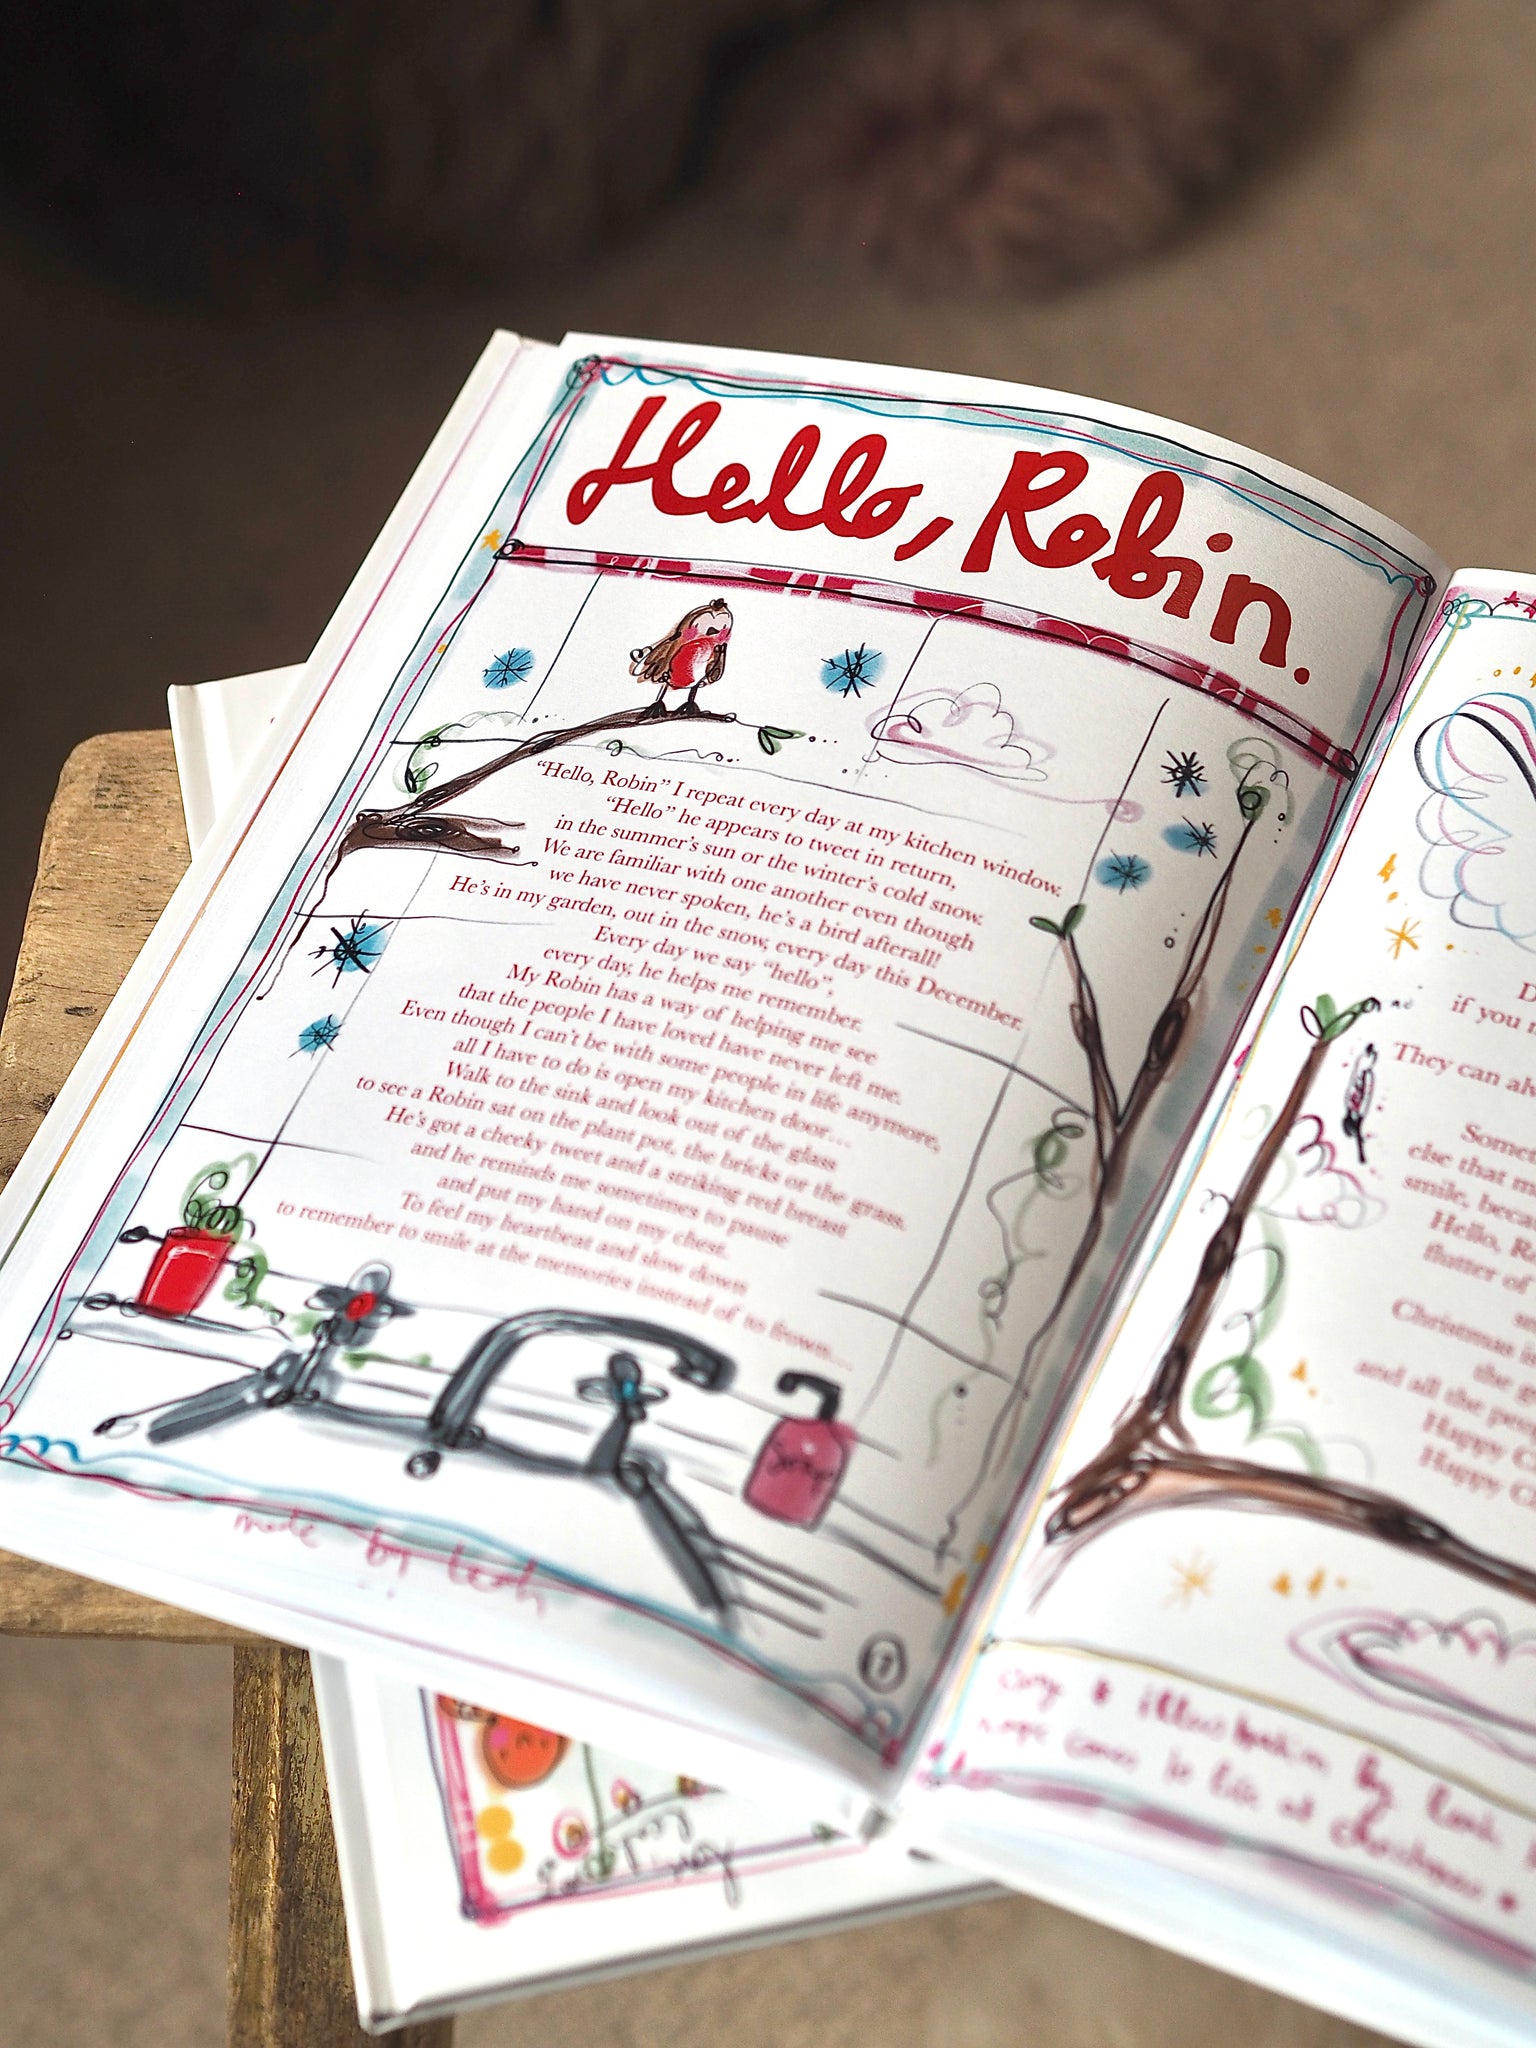 Hello, Robin.
“Hello, Robin” I repeat every day at my kitchen window.
“Hello” he appears to tweet in return,
in the summer's sun or the winter's cold snow.
We are familiar with one another even though
we have never spoken, he's a bird afterall!
He's in my garden, out in the snow, every day this December.
Every day we say “hello”,
every day, he helps me remember.
My Robin has a way of helping me see
that the people I have loved have never left me.
Even though I can't be with some people in life anymore,
all I have to do is open my kitchen door...
Walk to the sink and look out of the glass
to see a Robin sat on the plant pot, the bricks or the grass.
He's got a cheeky tweet and a striking red breast
and he reminds me sometimes to pause
and put my hand on my chest.
To feel my heartbeat and slow down
to remember to smile at the memories instead of to frown...
Soap
made by Leah
D
if you
They can al
Somet
else that m
smile, beca
Hello, R
flutter of
Christmas is
the g
and all the peo
Happy C
Happy C
copy + illustration by Leah
comes to life at Christmas